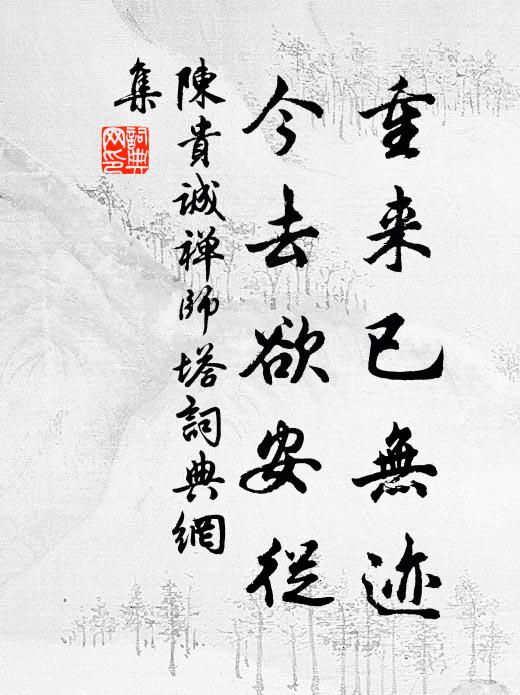 重来已無迹
今去欲安從
陳貴誠禅師塔詞典網
集
詞典网印